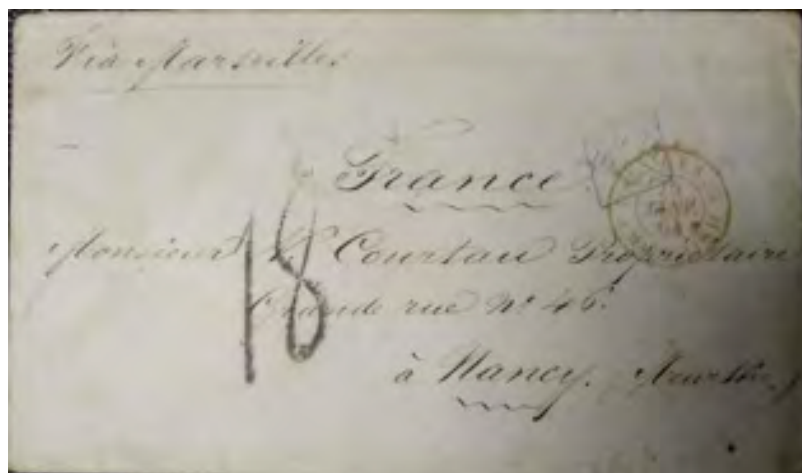 Via Marseilles
France
Monsieur Courtau Propriétaire
Grande rue Nº 46.
18
à Nancy. Meurthe